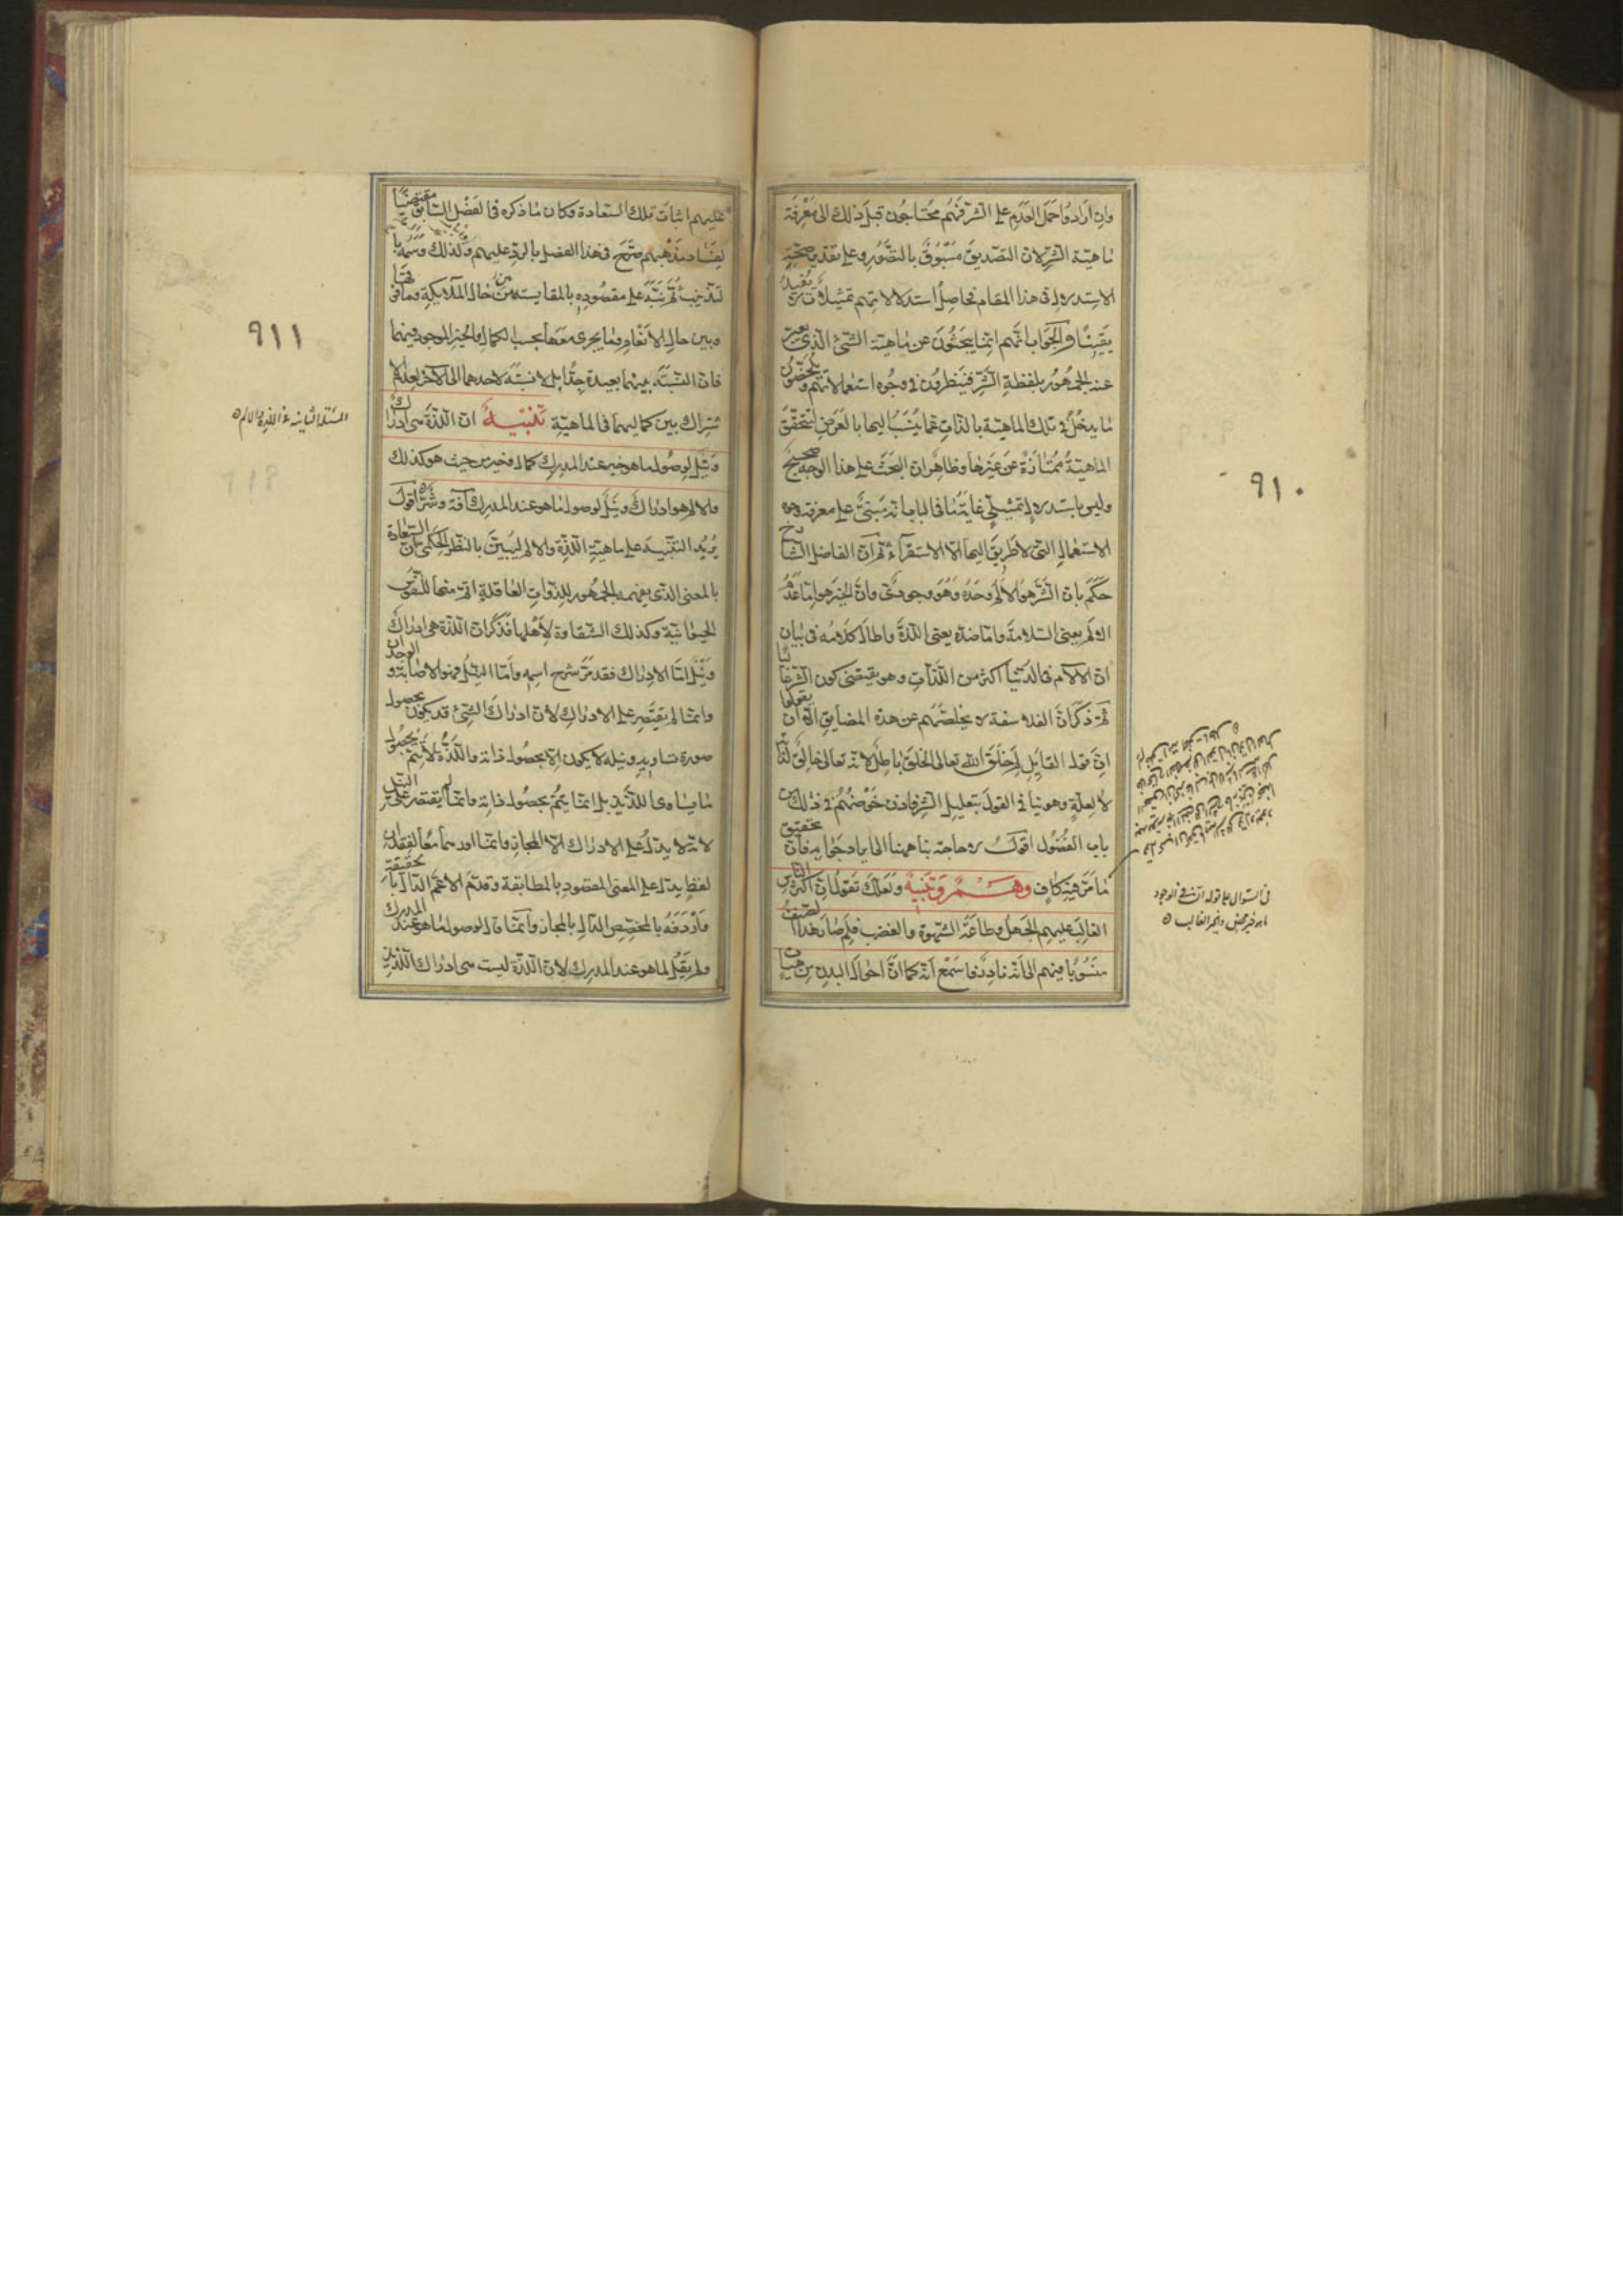 ٩١٠
وان ارادوا حمل العدم على الشر فهم محتاجون قبل ذلك الى معرفة
ماهية الشر لان التصديق مسبوق بالتصور وعلى تقدير صحة
الاستدلال في هذا المقام فحاصل استدلالاتهم تمثيلات لا تفيد
يقينا والجواب انهم انما يبحثون عن ماهية الشئ الذي يعبر
عند الجمهور بلفظة الشر فينظرون في وجوه استعمالاتهم ويلخصون
ما يدخل في تلك الماهية بالذات عما ينسب اليها بالعرض لتتحقق
الماهية ممتازة عن غيرها وظاهر ان البحث على هذا الوجه صحيح
وليس باستدلال تمثيلي غاية ما في الباب انه مبني على معرفة وجوه
الاستعمال التي لا طريق اليها الا الاستقراء ثم ان الفاضل الشارح
حكم بان الشر هو الالم وحده وهو وجودي وان الخير هو اما عدم
الالم يعني السلامة واما ضده يعني اللذة واطال كلامه في بيان
ان الالام في الدنيا اكثر من اللذات وهو يقتضي كون الشر غالبا
ثم ذكر ان الفلاسفة لا يخلصهم عن هذه المضايق الا ان يقولوا
ان قول القايل لم خلق الله تعالى الخلق باطل لانه تعالى خالق لذاته
لا لعلة وهو ينافي القول بتعليل الشر فاذن خوضهم في ذلك من
باب الفضول اقول لا حاجة بنا ههنا الى ايراد جوابه فان تحقيق
ما مر فيه كاف وهم وتنبيه ولعلك تقول ان اكثر الناس
الغالب عليهم الجهل وطاعة الشهوة والغضب فلم صار هذا الصنف
منسوبا فيهم الى انه نادر فاسمع انه كما ان احوال البدن من هيئات
في السوال على قوله ان في الوجود
ما هو خير محض والخير الغالب
٩١١
عليهم اثبات تلك السعادة وكان ما ذكره في الفصل السابق مقتضيا
لفساد مذهبهم صرح في هذا الفصل بالرد عليهم ولذلك وسمه با
لتذنيب ثم نبه على مقصوده بالمقايسة بين حال الملايكة وما فوقها
وبين حال الانعام وما يجري معها بحسب الكمال والخير الموجود فيهما
فان النسبة بينهما بعيدة جدا بل لا نسبة لاحدهما الى الاخر لعدم الا
شتراك بين كماليهما في الماهية تنبيه ان اللذة هي ادراك
ونيل لوصول ما هو خير عند المدرك كمال وخير من حيث هو كذلك
والالم هو ادراك ونيل لوصول ما هو عند المدرك آفة وشر اقول
يريد التنبيه على ماهية اللذة والالم ليبين بالنظر الحكمي ان السعادة
بالمعنى الذي يفهمه الجمهور للذوات العاقلة اتم منها للنفوس
الحيوانية وكذلك الشقاوة لاهلها فذكر ان اللذة هي ادراك
ونيل اما الادراك فقد مر شرح اسمه واما النيل فهو الاصابة والوجدان
وانما لم يقتصر على الادراك لان ادراك الشئ قد يكون بحصول
صورة تساويه ونيله لا يكون الا بحصول ذاته واللذة لا تتم بحصول
ما يساوي اللذيذ بل انما يتم بحصول ذاته وانما لم يقتصر على النيل
لانه لا يدل على الادراك الا بالمجاز وانما اوردهما معا لفقدان
لفظ يدل على المعنى المقصود بالمطابقة وقدم الاعم الدال بالحقيقة
واردفه بالمخصص الدال بالمجاز وانما قال لوصول ما هو عند المدرك
ولم يقل لما هو عند المدرك لان اللذة ليست هي ادراك اللذيذ
المسئلة الثانية في اللذة والالم